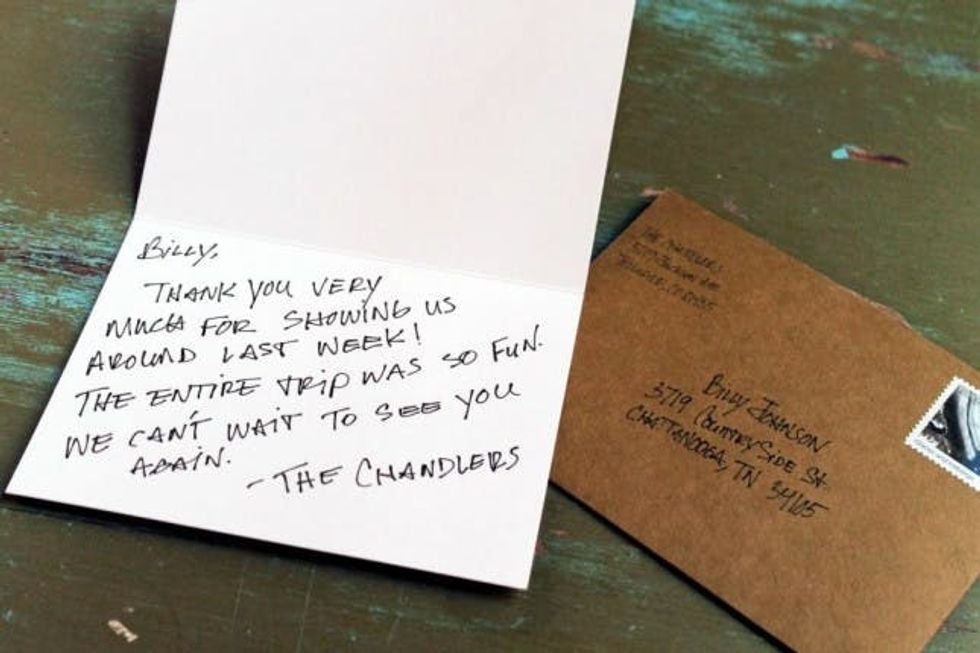 Billy,
THANK YOU VERY
MUCH FOR SHOWING US
AROUND LAST WEEK!
THE ENTIRE TRIP WAS SO FUN.
WE CAN'T WAIT TO SEE YOU
AGAIN.
- THE CHANDLERS
THE CHANDLERS
Billy JOHNSON
3719 COUNTRY SIDE St.
CHATTANOOGA, TN 34105